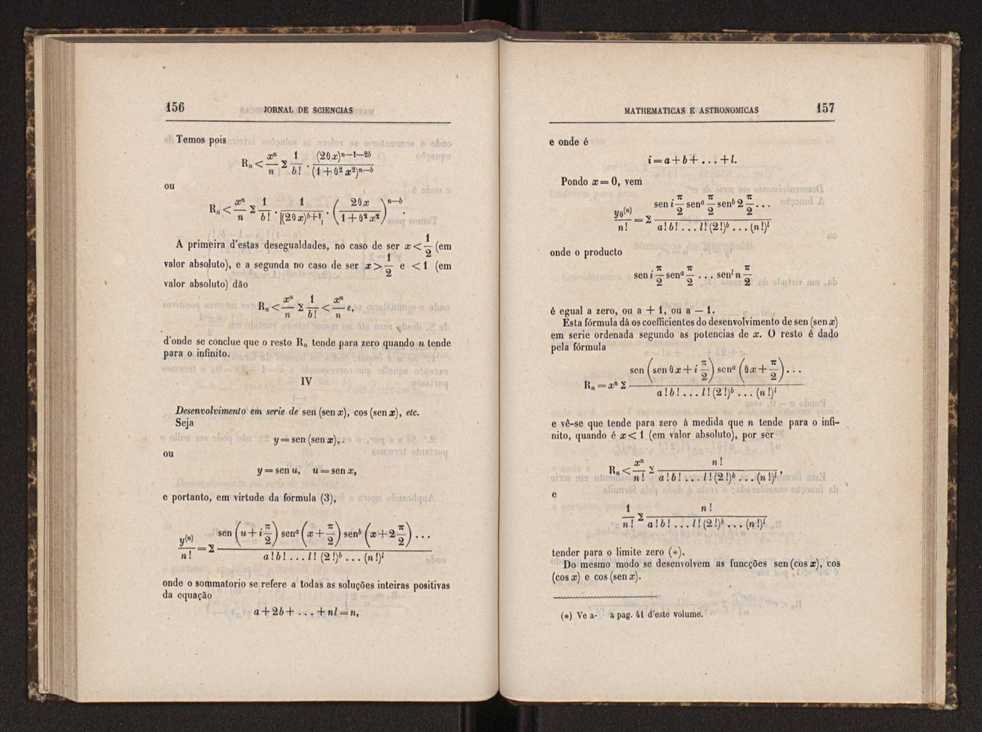 156 JORNAL DE SCIENCIAS
Temos pois
Rₙ < xⁿ/n Σ 1/b! . (2θx)ⁿ⁻¹⁻²ᵇ/(1+θ²x²)ⁿ⁻ᵇ
ou
Rₙ < xⁿ/n Σ 1/b! . 1/[(2θx)ᵇ⁺¹] . (2θx/(1+θ²x²))ⁿ⁻ᵇ.
A primeira d'estas desegualdades, no caso de ser x < 1/2 (em
valor absoluto), e a segunda no caso de ser x > 1/2 e < 1 (em
valor absoluto) dão
Rₙ < xⁿ/n Σ 1/b! < xⁿ/n e,
d'onde se conclue que o resto Rₙ tende para zero quando n tende
para o infinito.
IV
Desenvolvimento em serie de sen (sen x), cos (sen x), etc.
Seja
y = sen (sen x),
ou
y = sen u, u = sen x,
e portanto, em virtude da formula (3),
y⁽ⁿ⁾/n! = Σ sen (u + i π/2) senᵃ (x + π/2) senᵇ (x + 2 π/2) . . . / a! b! . . . l! (2!)ᵇ . . . (n!)ˡ
onde o sommatorio se refere a todas as soluções inteiras positivas
da equação
a + 2b + . . . + nl = n,
MATHEMATICAS E ASTRONOMICAS 157
e onde é
i = a + b + . . . + l.
Pondo x = 0, vem
y₀⁽ⁿ⁾/n! = Σ sen i π/2 senᵃ π/2 senᵇ 2 π/2 . . . / a! b! . . . l! (2!)ᵇ . . . (n!)ˡ
onde o producto
sen i π/2 senᵃ π/2 . . . senˡ n π/2
é egual a zero, ou a + 1, ou a — 1.
Esta fórmula dá os coefficientes do desenvolvimento de sen (sen x)
em serie ordenada segundo as potencias de x. O resto é dado
pela fórmula
Rₙ = xⁿ Σ sen (sen θx + i π/2) senᵃ (θx + π/2) . . . / a! b! . . . l! (2!)ᵇ . . . (n!)ˡ
e vê-se que tende para zero á medida que n tende para o infi-
nito, quando é x < 1 (em valor absoluto), por ser
Rₙ < xⁿ/n! Σ n! / a! b! . . . l! (2!)ᵇ . . . (n!)ˡ,
e
1/n! Σ n! / a! b! . . . l! (2!)ᵇ . . . (n!)ˡ
tender para o limite zero (*).
Do mesmo modo se desenvolvem as funcções sen (cos x), cos
(cos x) e cos (sen x).
(*) Ve a pag. 41 d'este volume.